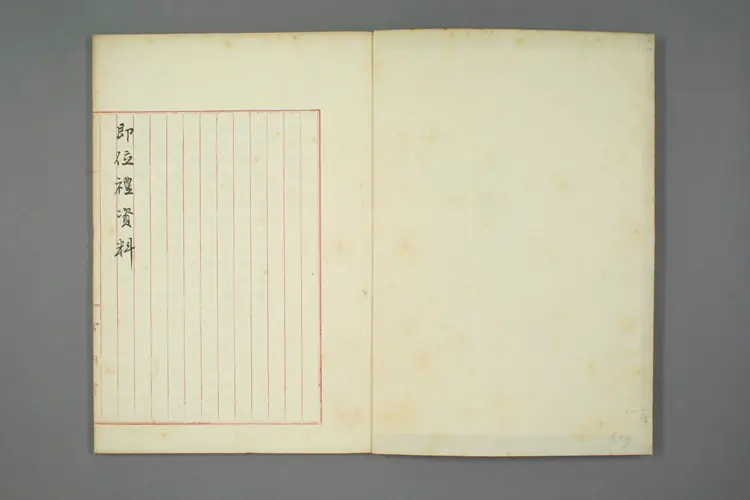 即位禮資料